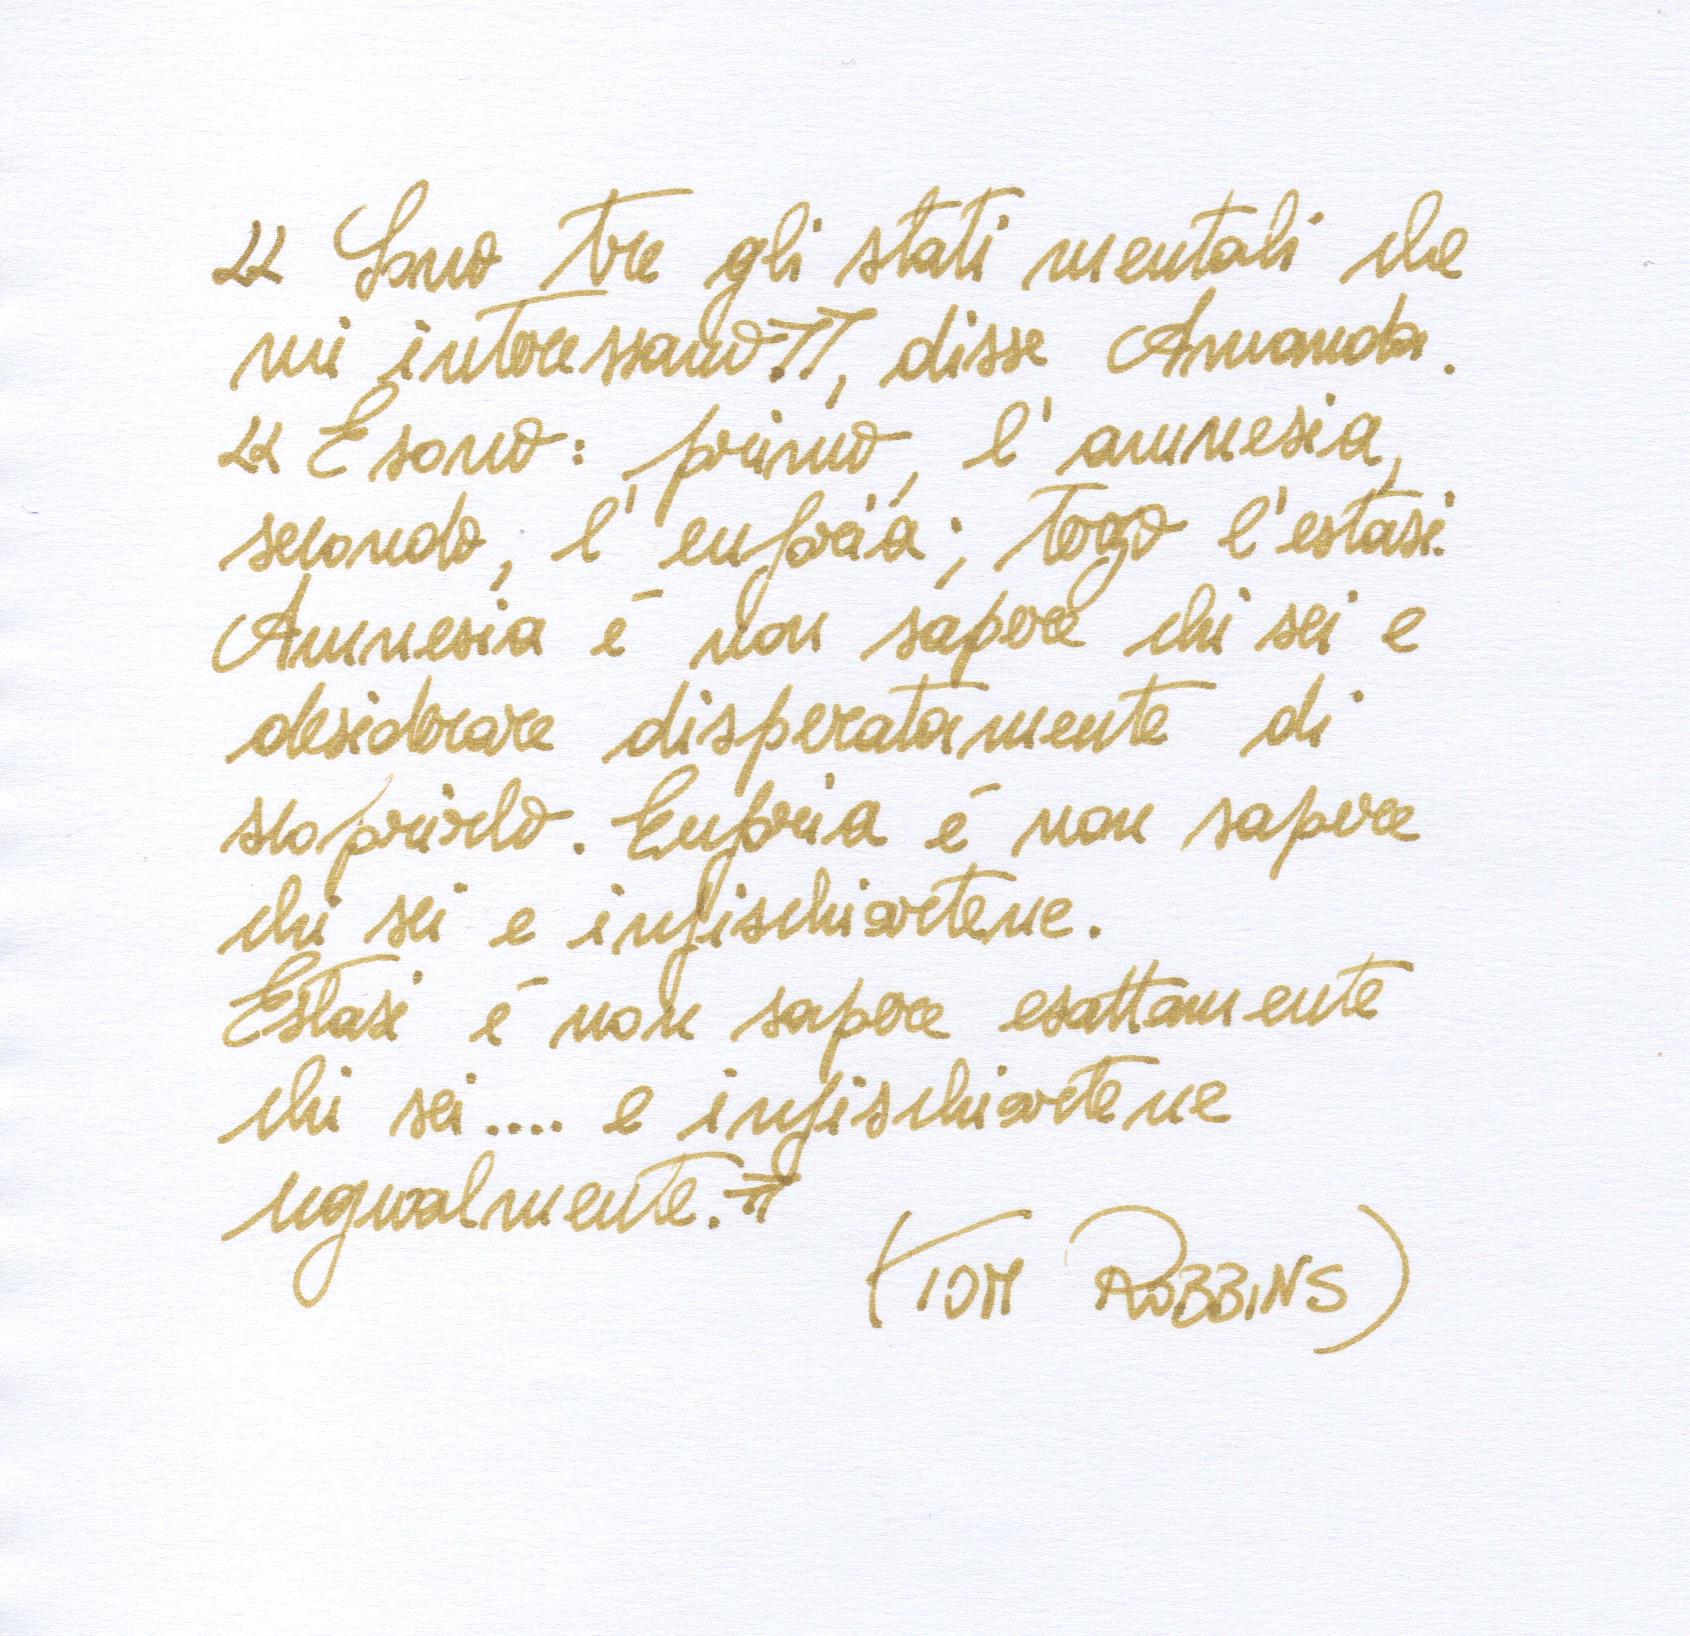 “ Sono tre gli stati mentali che
mi interessano.”, disse Amanda.
“ E sono: primo, l'amnesia,
secondo, l'euforia; terzo l'estasi.
Amnesia è non sapere chi sei e
desiderare disperatamente di
scoprirlo. Euforia è non sapere
chi sei e infischiartene.
Estasi è non sapere esattamente
chi sei.... e infischiartene
ugualmente.”
(TOM ROBBINS)